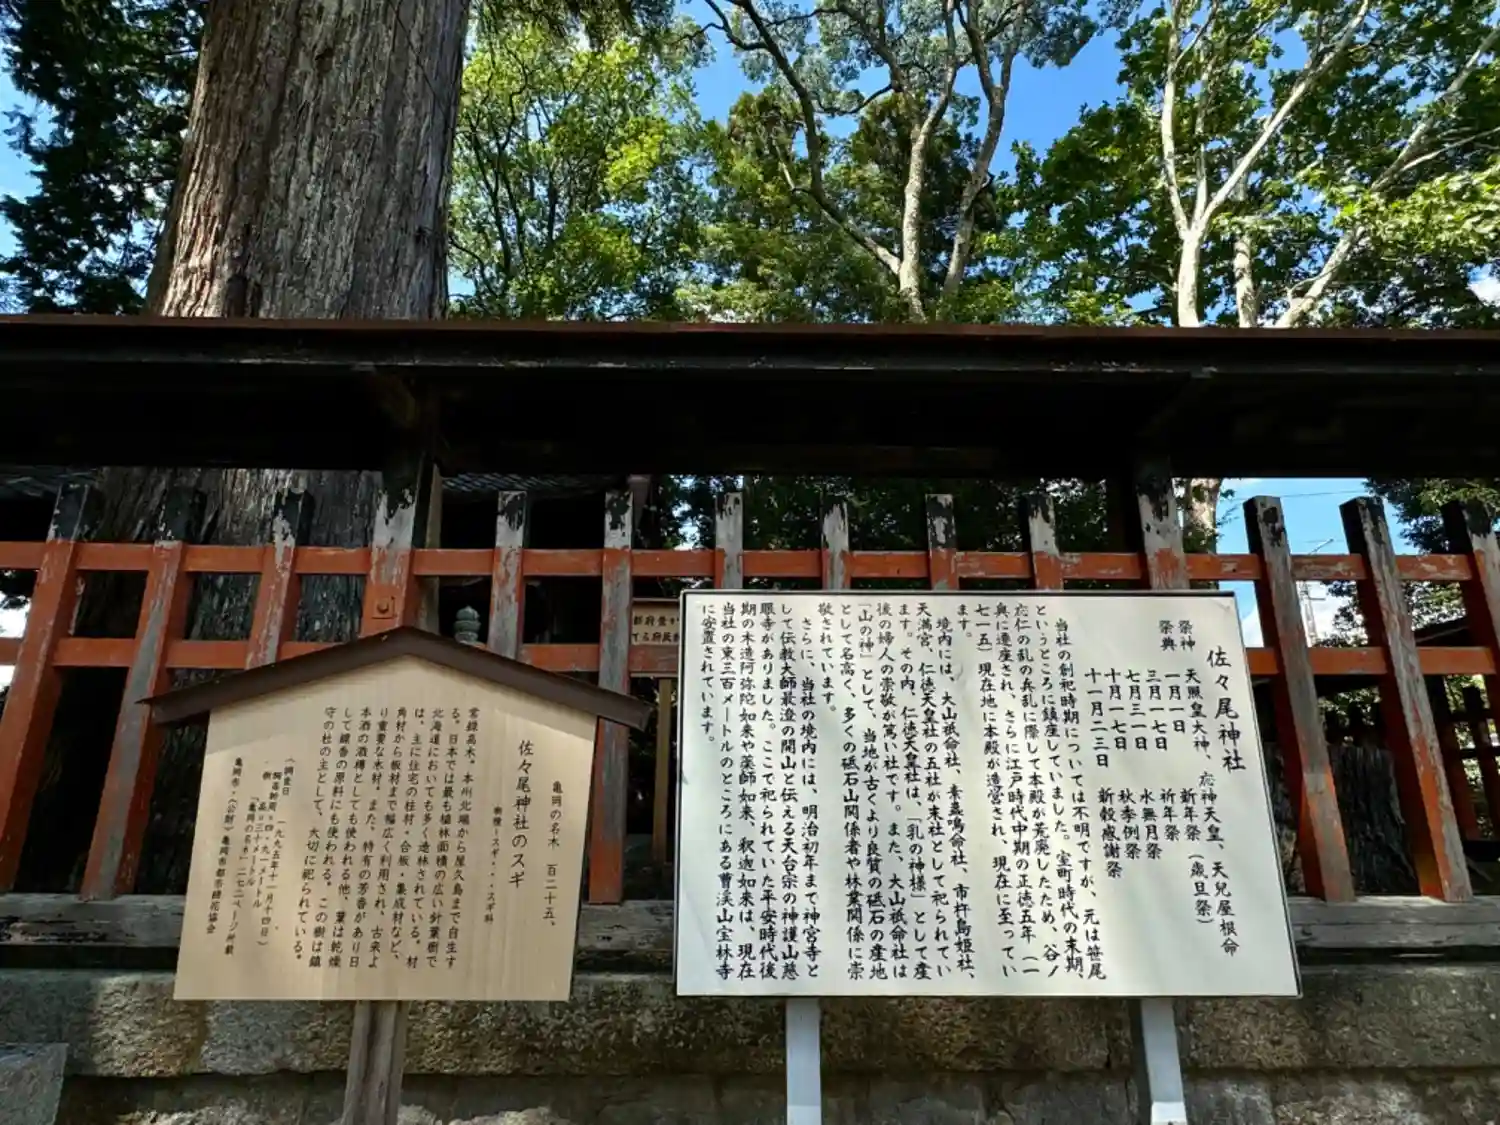 佐々尾神社
祭神　天照皇大神、応神天皇、天児屋根命
祭典　一月一日　新年祭（歳旦祭）
三月一七日　祈年祭
七月三一日　水無月祭
十月一七日　秋季例祭
十一月二三日　新穀感謝祭
当社の創祀時期については不明ですが、元は笹尾
というところに鎮座していました。室町時代の末期、
応仁の乱の兵乱に際して本殿が荒廃したため、谷ノ
奥に遷座され、さらに江戸時代中期の正徳五年（一
七一五）現在地に本殿が造営され、現在に至ってい
ます。
境内には、大山祇命社、素盞嗚命社、市杵島姫社、
天満宮、仁徳天皇社の五社が末社として祀られてい
ます。その内、仁徳天皇社は、「乳の神様」として産
後の婦人の崇敬が篤い社です。また、大山祇命社は
「山の神」として、当地が古くより良質の砥石の産地
として名高く、多くの砥石山関係者や林業関係に崇
敬されています。
さらに、当社の境内には、明治初年まで神宮寺と
して伝教大師最澄の開山と伝える天台宗の神護山慈
眼寺がありました。ここで祀られていた平安時代後
期の木造阿弥陀如来や薬師如来、釈迦如来は、現在
当社の東三百メートルのところにある曹渓山宝林寺
に安置されています。
亀岡の名木　百二十五、
佐々尾神社のスギ
樹種－スギ・・・スギ科
常緑高木。本州北端から屋久島まで自生す
る。日本では最も植林面積の広い針葉樹で
北海道においても多く造林されている。材
は、主に住宅の柱材・合板・集成材など、
角材から板材まで幅広く利用され、古来よ
り重要な木材。また、特有の芳香があり日
本酒の酒樽としても使われる他、葉は乾燥
して線香の原料にも使われる。この樹は鎮
守の杜の主として、大切に祀られている。
（調査日　一九九五年十一月十四日）
胸高幹周＝四・九一メートル
樹　高＝三十メートル
「亀岡の名木」二七二ページ所載
亀岡市・（公財）亀岡市都市緑花協会